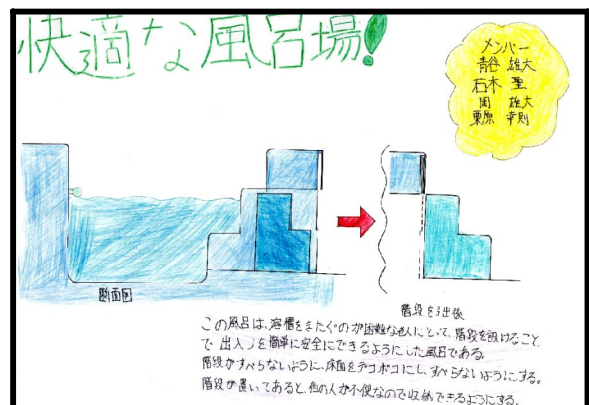 快適な風呂場!
メンバー
青谷 雄大
石木 聖
岡 雄大
栗原 幸則
断面図
階段を引出後
この風呂は、浴槽をまたぐのが困難な老人にとって、階段を設けること
で 出入りを簡単に安全にできるようにした風呂である。
階段がすべらないように、床面をデコボコにし、すべらないようにする。
階段が置いてあると、他の人が不便なので収納できるようにする。